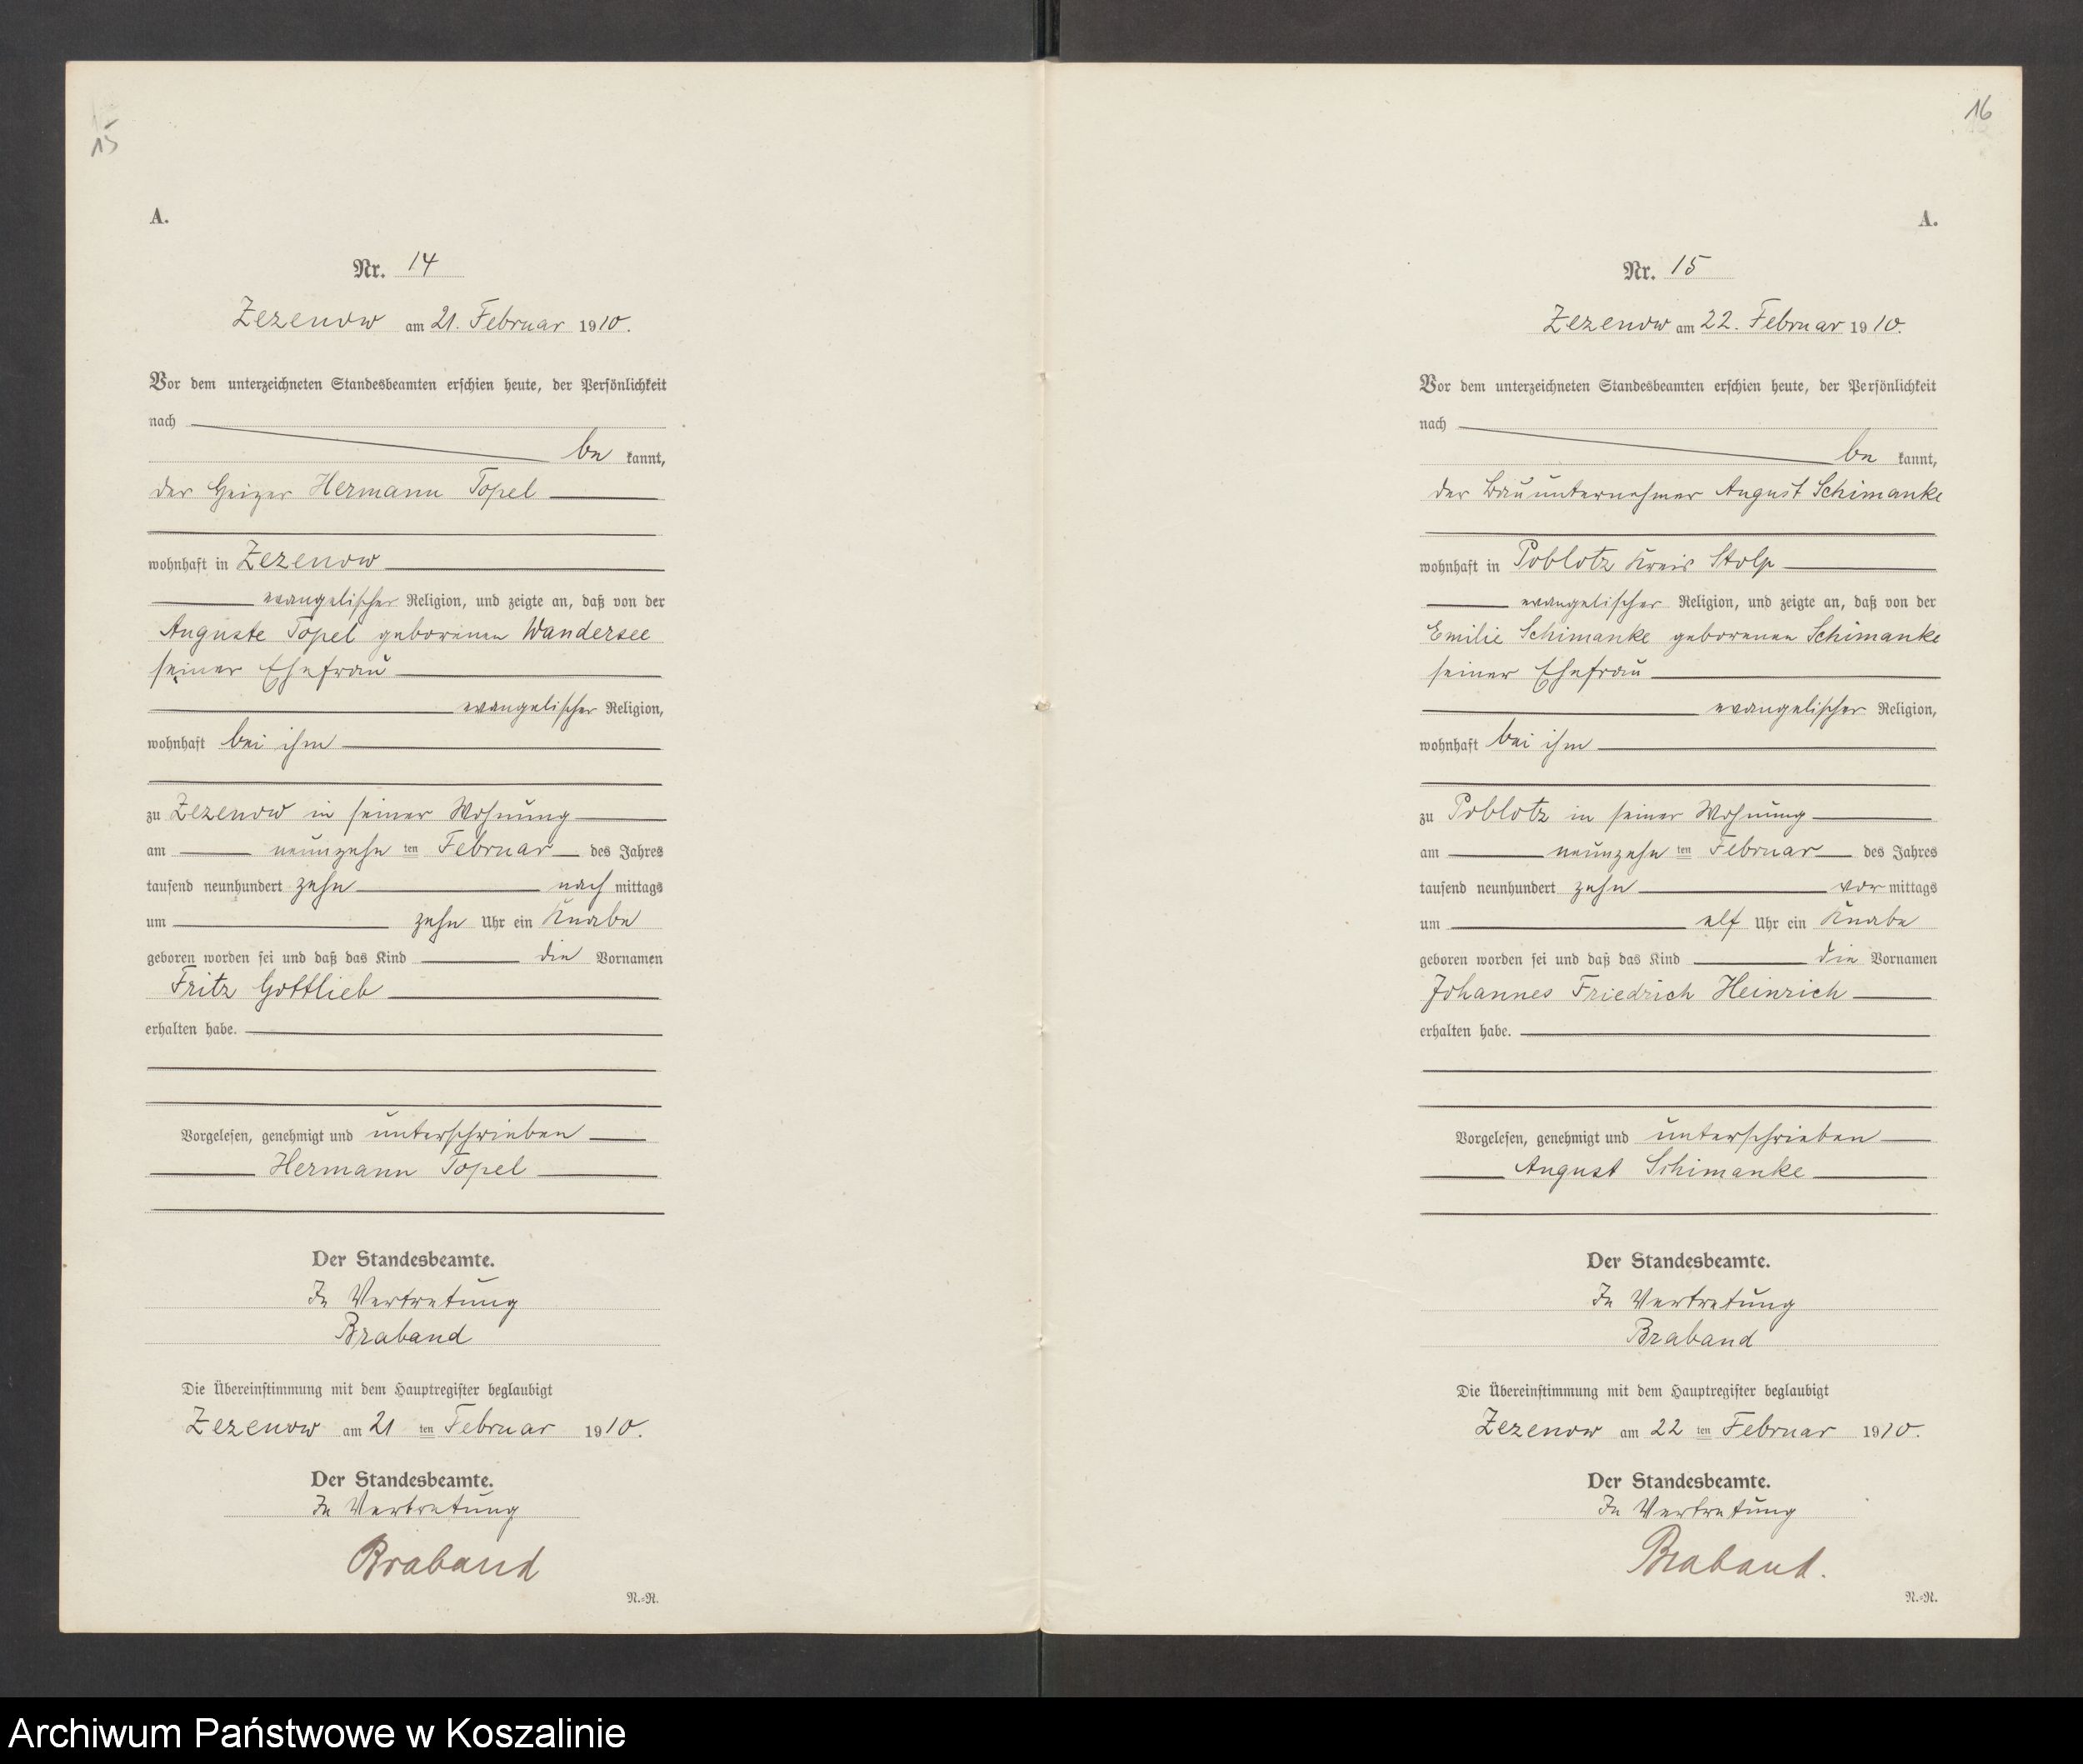 15
A.
Nr. 14
Zezenow am 21. Februar 1910.
Vor dem unterzeichneten Standesbeamten erschien heute, der Persönlichkeit
nach
be kannt,
der Heizer Hermann Topel
wohnhaft in Zezenow
evangelischer Religion, und zeigte an, daß von der
Auguste Topel geborenen Wandersee
seiner Ehefrau
evangelischer Religion,
wohnhaft bei ihm
zu Zezenow in seiner Wohnung
am neunzehn ten Februar des Jahres
tausend neunhundert zehn nach mittags
um zehn Uhr ein Knabe
geboren worden sei und daß das Kind die Vornamen
Fritz Gottlieb
erhalten habe.
Vorgelesen, genehmigt und unterschrieben
Hermann Topel
Der Standesbeamte.
In Vertretung
Braband
Die Übereinstimmung mit dem Hauptregister beglaubigt
Zezenow am 21 ten Februar 1910.
Der Standesbeamte.
In Vertretung
Braband
N.=N.
16
A.
Nr. 15
Zezenow am 22. Februar 1910.
Vor dem unterzeichneten Standesbeamten erschien heute, der Persönlichkeit
nach
be kannt,
der Bauunternehmer August Schimanke
wohnhaft in Poblotz Kreis Stolp
evangelischer Religion, und zeigte an, daß von der
Emilie Schimanke geborenen Schimanke
seiner Ehefrau
evangelischer Religion,
wohnhaft bei ihm
zu Poblotz in seiner Wohnung
am neunzehn ten Februar des Jahres
tausend neunhundert zehn vor mittags
um elf Uhr ein Knabe
geboren worden sei und daß das Kind die Vornamen
Johannes Friedrich Heinrich
erhalten habe.
Vorgelesen, genehmigt und unterschrieben
August Schimanke
Der Standesbeamte.
In Vertretung
Braband
Die Übereinstimmung mit dem Hauptregister beglaubigt
Zezenow am 22 ten Februar 1910.
Der Standesbeamte.
In Vertretung
Braband.
N.=N.
Archiwum Państwowe w Koszalinie